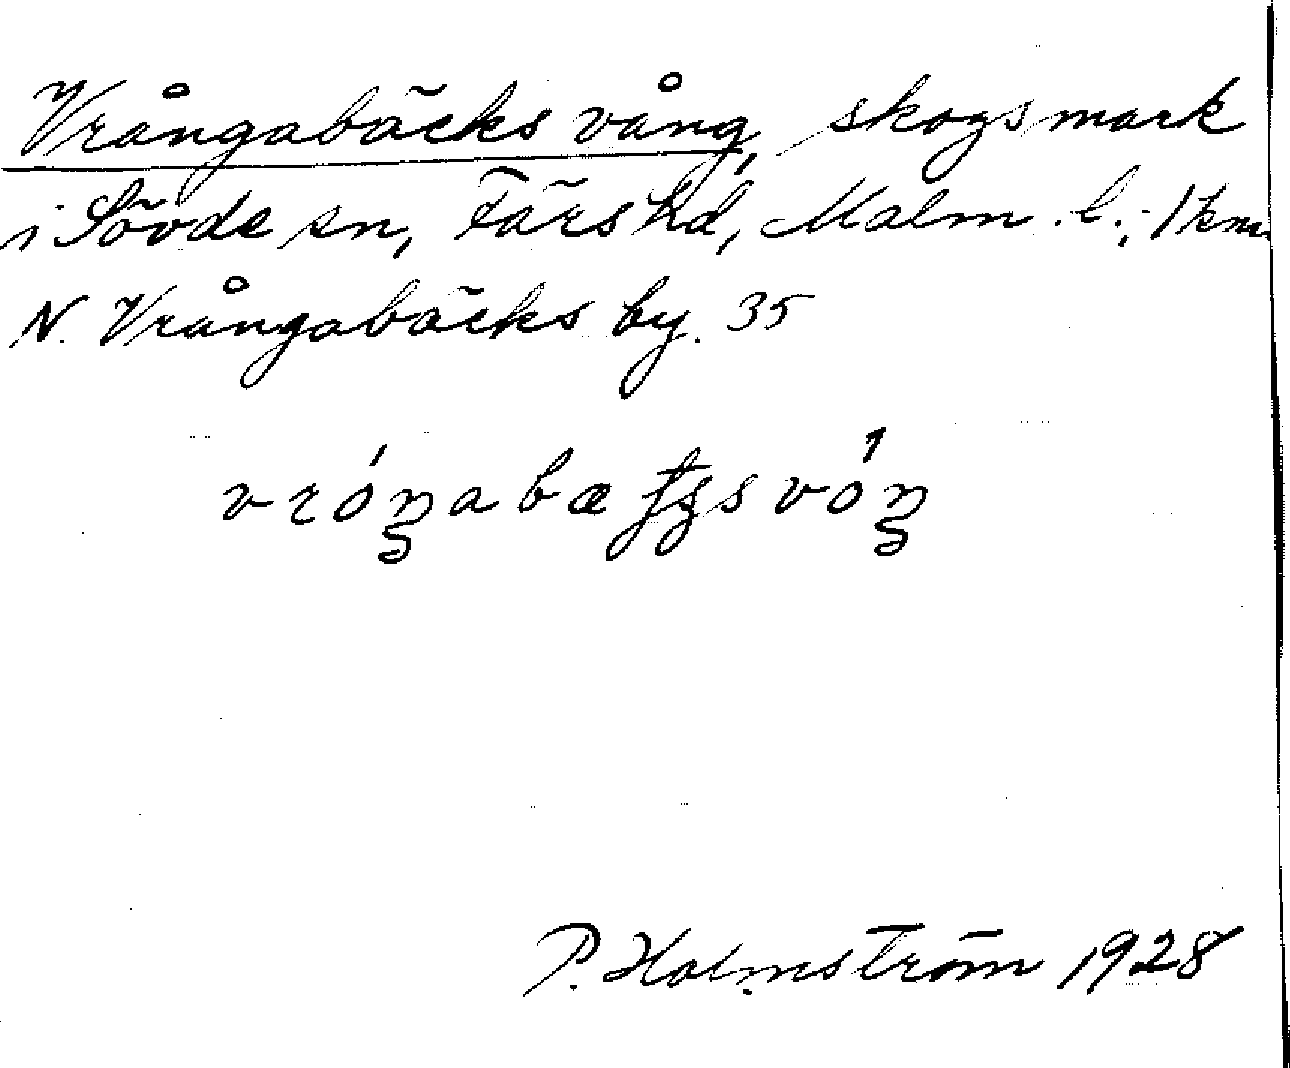 Vrångabäcks vång, skogsmark
i Sövde sn, Färs hd, Malm. l.; 1 km.
N. Vrångabäcks by. 35
P. Holmström 1928